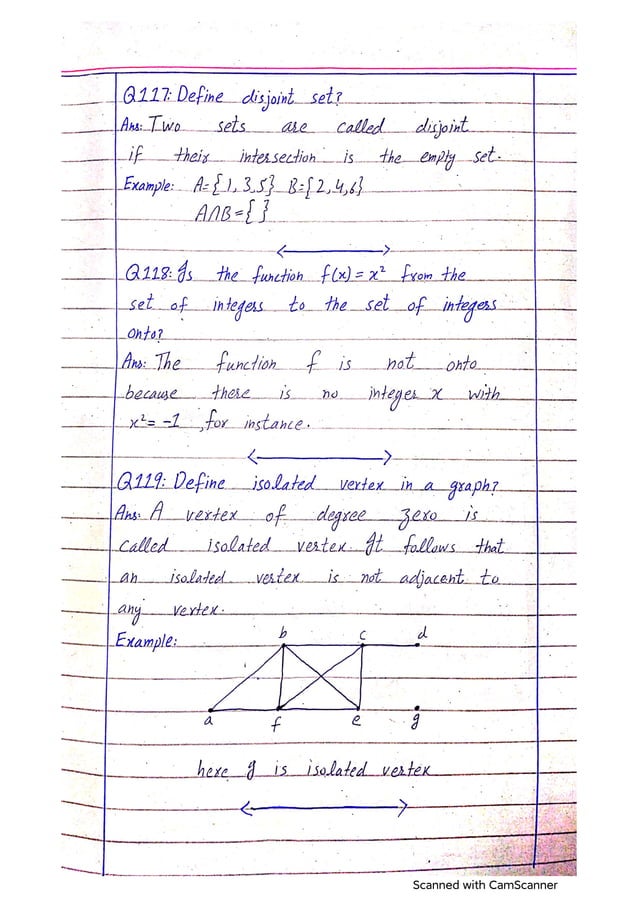 Q117: Define disjoint set?
Ans: Two sets are called disjoint
if their intersection is the empty set.
Example: A={1,3,5} B={2,4,6}
A∩B={ }
Q118: Is the function f(x) = x² from the
set of integers to the set of integers
onto?
Ans: The function f is not onto
because there is no integer x with
x²= -1 , for instance.
Q119: Define isolated vertex in a graph?
Ans: A vertex of degree zero is
called isolated vertex. It follows that
an isolated vertex is not adjacent to
any vertex.
Example:
b c d
a f e g
here g is isolated vertex
Scanned with CamScanner